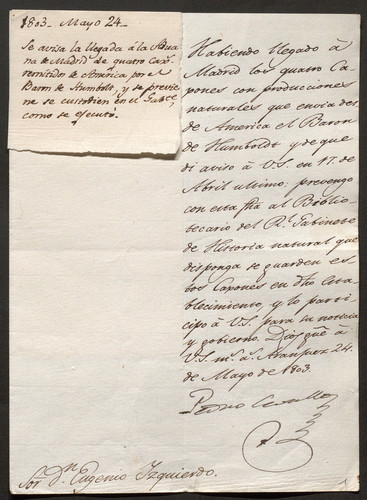 1803- Mayo 24-
Se avisa la llegada à la Adua
na de Madrid de quatro Caxo[nes]
remitidos de America por el
Baron de Humbolt; y se previe
ne se custodien en el Gabte
como se executó.
Habiendo llegado à
Madrid los quatro Ca
xones con producciones
naturales que envia des
de America el Baron
de Humboldt y de que
di aviso à V.S. en 17. de
Abril ultimo; prevengo
con esta fha al Biblio
tecario del Rl. Gabinete
de Historia natural que
disponga se guarden es
tos Caxones en dho Esta
blecimiento, y lo parti
cipo à V.S. para su noticia
y gobierno. Dios gue à
V.S. ms. as. Aranjuez 24.
de Mayo de 1803.
Pedro Cevallos
Sor. Dn. Eugenio Izquierdo.